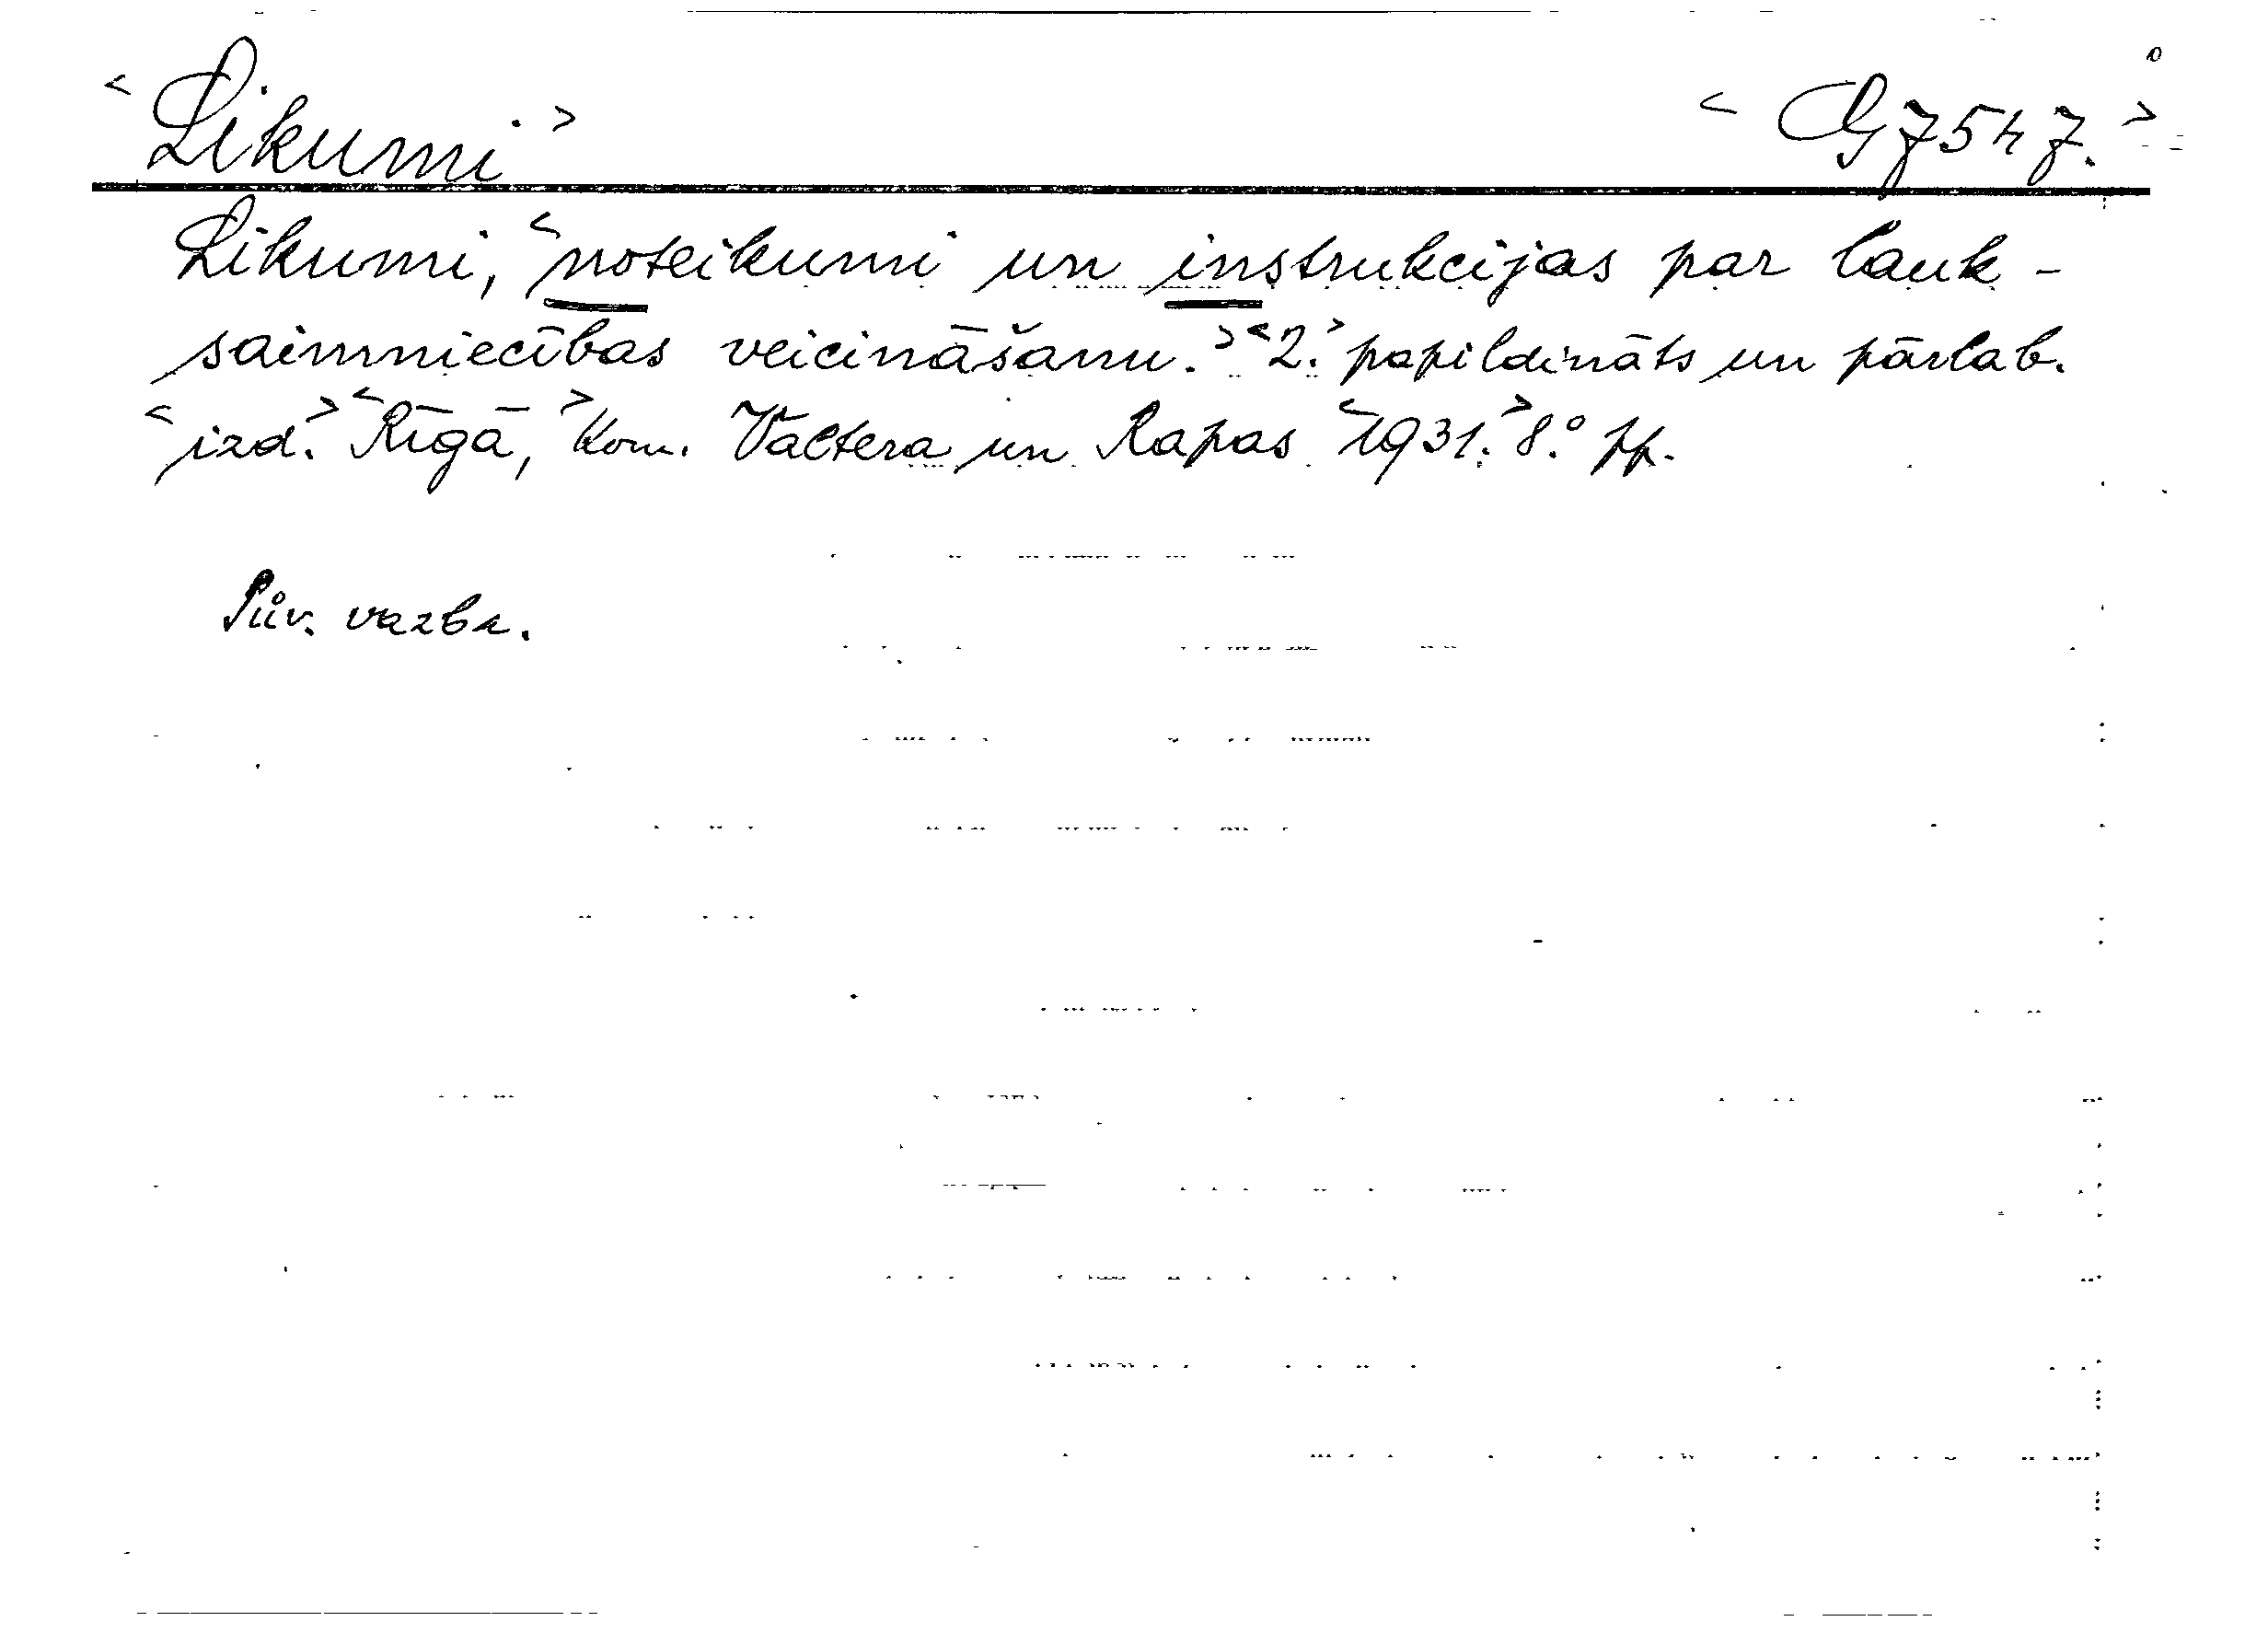 <Likumi.> <G7547.>
Likumi, <noteikumi un instrukcijas par lauk-
saimniecības veicināšanu.> <2.> papildināts un pārlab.
<izd.> <Rīgā,> kom. Valtera un Rapas <1931.> 8.°
vazba.